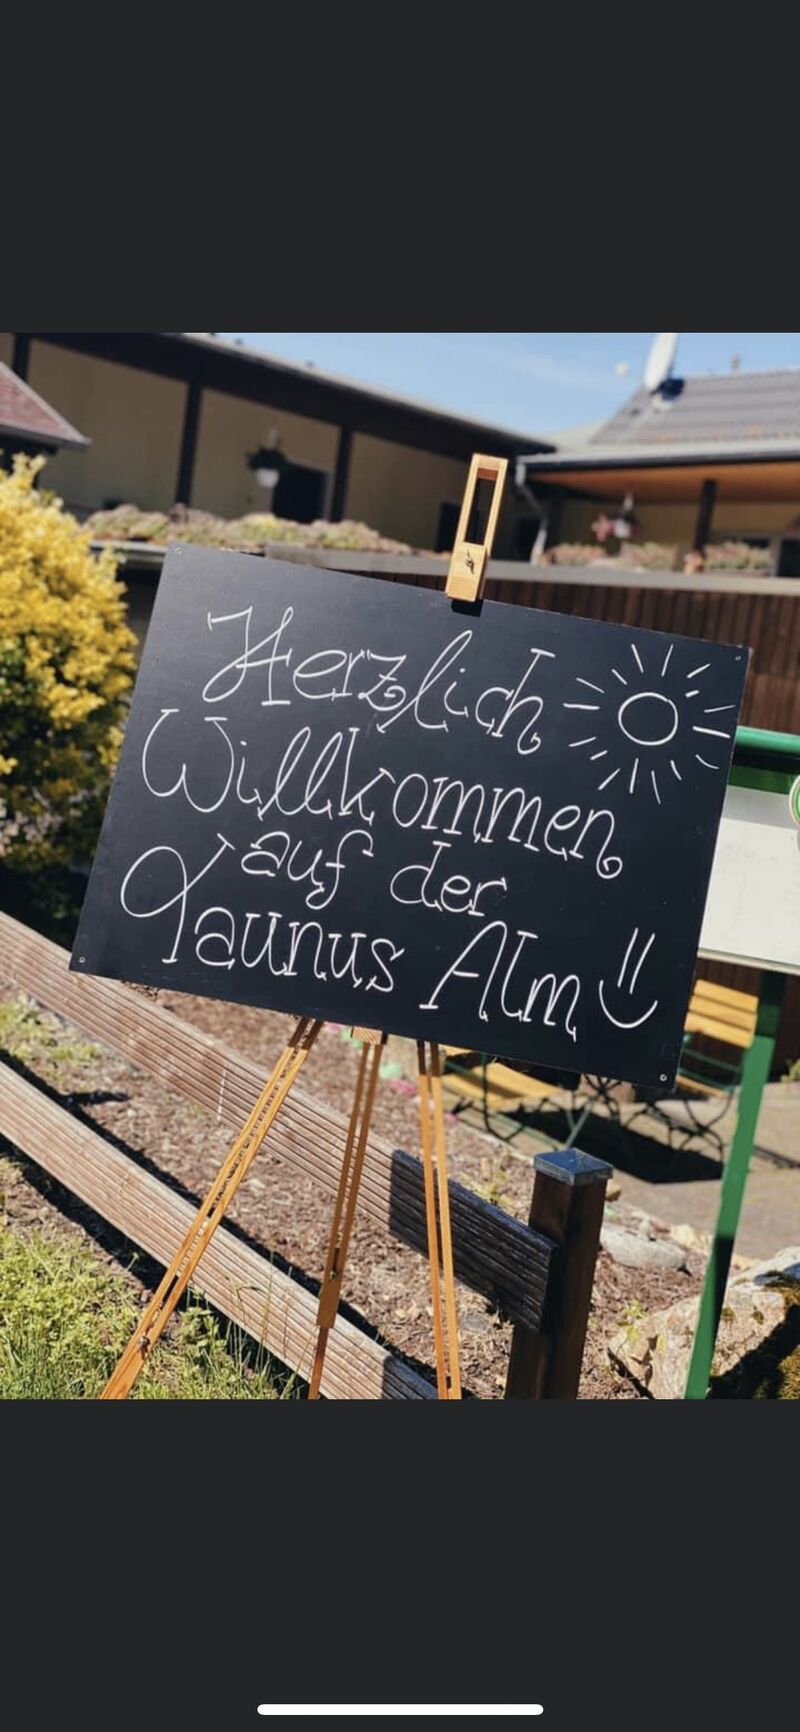 Herzlich
Willkommen
auf der
Taunus Alm